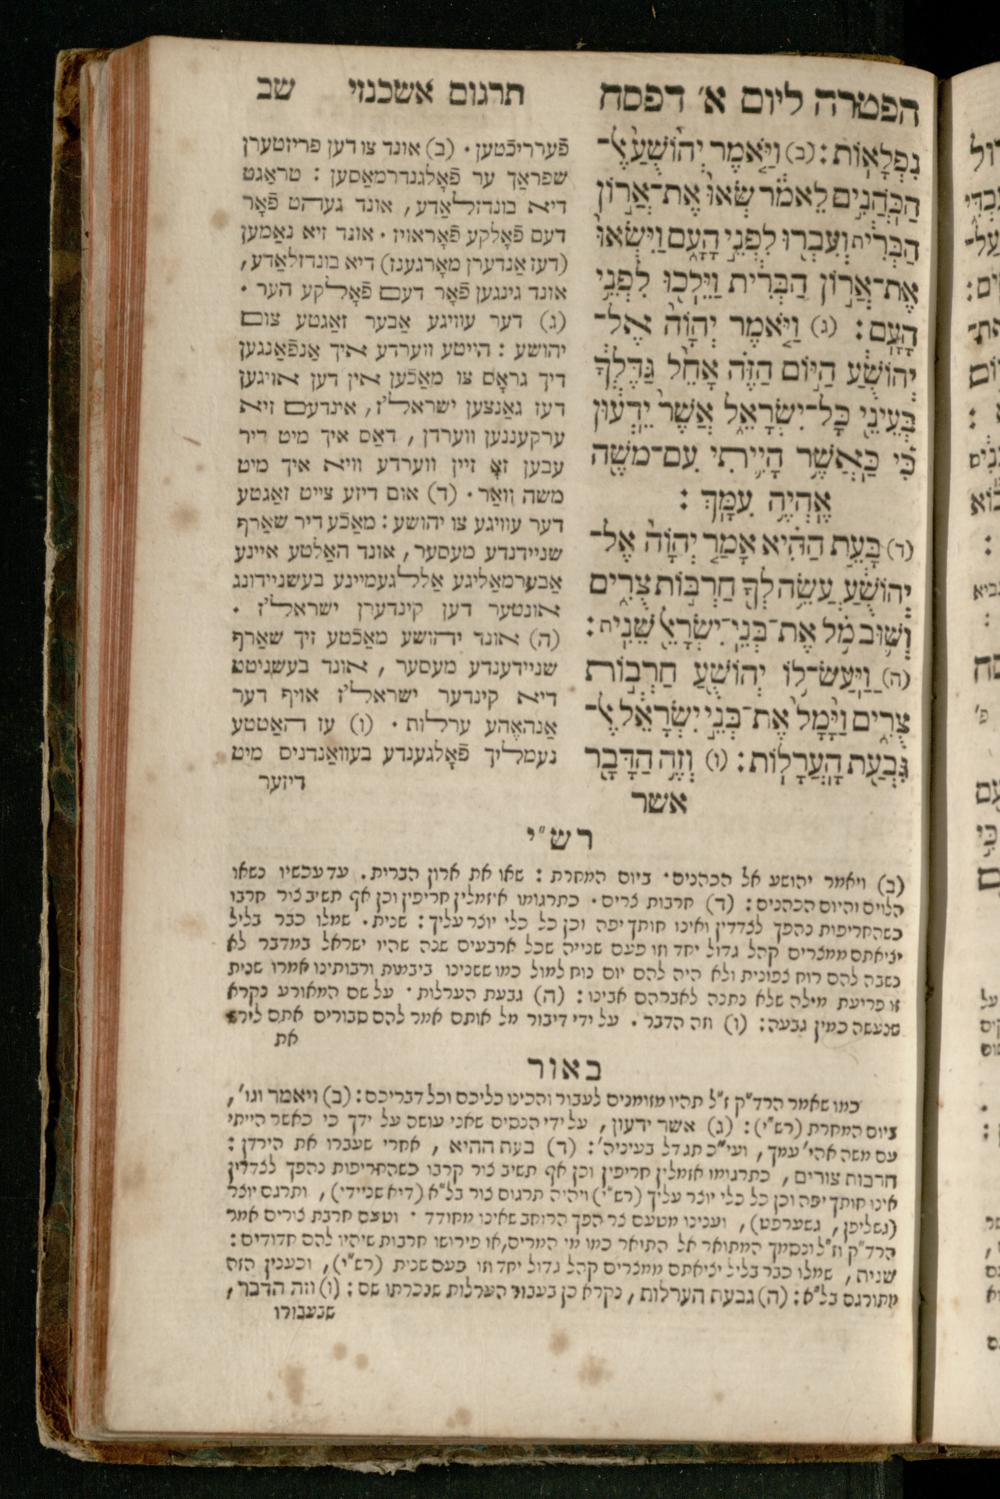 הפטרה ליום א׳ דפסח
תרגום אשכנזי
שב
נִפְלָאֽוֹת׃ (ב) וַיֹּ֤אמֶר יְהוֹשֻׁ֙עַ֙ אֶל־
הַכֹּֽהֲנִ֣ים לֵאמֹ֔ר שְׂאוּ֙ אֶת־אֲר֣וֹן
הַבְּרִ֔ית וְעִבְר֖וּ לִפְנֵ֣י הָעָ֑ם וַיִּשְׂאוּ֙
אֶת־אֲר֣וֹן הַבְּרִ֔ית וַיֵּֽלְכ֖וּ לִפְנֵ֥י
הָעָֽם׃ (ג) וַיֹּ֤אמֶר יְהוָֹה֙ אֶל־
יְהוֹשֻׁ֔עַ הַיּ֣וֹם הַזֶּ֗ה אָחֵל֙ גַּדֶּלְךָ֔
בְּעֵינֵ֖י כָּל־יִשְׂרָאֵ֑ל אֲשֶׁר֙ יֵֽדְע֔וּן
כִּ֗י כַּֽאֲשֶׁ֥ר הָיִ֛יתִי עִם־משֶׁ֖ה
אֶֽהְיֶ֥ה עִמָּֽךְ׃
(ד) בָּעֵ֣ת הַהִ֗יא אָמַ֤ר יְהוָֹה֙ אֶל־
יְהוֹשֻׁ֔עַ עֲשֵׂ֥ה לְךָ֖ חַרְב֣וֹת צֻרִ֑ים
וְשׁ֛וּב מֹ֥ל אֶת־בְּנֵֽי־יִשְׂרָאֵ֖ל שֵׁנִֽית׃
(ה) וַיַּֽעַשׂ־ל֥וֹ יְהוֹשֻׁ֖עַ חַרְב֣וֹת
צֻרִ֑ים וַיָּ֙מָל֙ אֶת־בְּנֵ֣י יִשְׂרָאֵ֔ל אֶל־
גִּבְעַ֖ת הָֽעֲרָלֽוֹת׃ (ו) וְזֶ֥ה הַדָּבָ֖ר
אשר
פֿערריכֿטען. (ב) אונד צו דען פריזטערן
שפראַך ער פֿאָלגנדרמאַסען: טראַגט
דיא בונדזלאַדע, אונד געהט פֿאָר
דעם פֿאָלקע פֿאָראויז. אונד זיא נאַמען
(דעז אַנדערן מאָרגענז) דיא בונדזלאַדע,
אונד גינגען פֿאָר דעם פֿאָלקע הער.
(ג) דער עוויגע אַבער זאַגטע צום
יהושע: הייטע ווערדע איך אַנפֿאַנגען
דיך גראָס צו מאַכֿען אין דען אויגען
דעז גאַנצען ישראל'ז, אינדעם זיא
ערקעננען ווערדן, דאַס איך מיט דיר
עבען זאָ זיין ווערדע וויא איך מיט
משה וואַר. (ד) אום דיזע צייט זאַגטע
דער עוויגע צו יהושע: מאַכֿע דיר שאַרף
שניידנדע מעסער, אונד האַלטע איינע
אַבערמאַליגע אַללגעמיינע בעשניידונג
אונטער דען קינדערן ישראל'ז.
(ה) אונד יהושע מאַכֿטע זיך שאַרף
שניידענדע מעסער, אונד בעשניטט
דיא קינדער ישראל'ז אויף דער
אַנהאָהע ערלות. (ו) עז האַטטע
נעמליך פֿאָלגענדע בעוואַנדניס מיט
דיזער
רש״י
(ב) ויאמר יהושע אל הכהנים. ביום המחרת: שאו את ארון הברית. עד עכשיו נשאו
הלוים והיום הכהנים: (ד) חרבות צרים. כתרגומו איזמלין חריפין וכן אף תשיב צור חרבו
כשהחריפות נהפך לצדדין ואינו חותך יפה וכן כל כלי יוצר עליך: שנית. שמלו כבר בליל
יציאתם ממצרים קהל גדול יחד וזו פעם שנייה שכל ארבעים שנה שהיו ישראל במדבר לא
נשבה להם רוח צפונית ולא היה להם יום נוח למול כמו ששנינו ביבמות ורבותינו אמרו שנית
זו פריעת מילה שלא נתנה לאברהם אבינו: (ה) גבעת הערלות. על שם המאורע נקרא
שנעשה כמין גבעה: (ו) וזה הדבר. על ידי דיבור מל אותם אמר להם סבורים אתם לירש
את
באור
כמו שאמר הרד״ק ז״ל תהיו מזומנים לעבור והכינו כליכם וכל דבריכם: (ב) ויאמר וגו׳,
ביום המחרת (רש״י): (ג) אשר ידעון, על ידי הנסים שאני עושה על ידך כי כאשר הייתי
עם משה אהי׳ עמך, ועי״כ תגדל בעיניה׳: (ד) בעת ההיא, אחרי שעברו את הירדן:
חרבות צורים, כתרגומו אזמלין חריפין וכן אף תשיב צור חרבו כשהחריפות נהפך לצדדין
אינו חותך יפה וכן כל כלי יוצר עליך (רש״י) ויהיה תרגום צור בל״א (דיא שניידי), ותרגם יוצר
(געשליפן, געשערפט), וענינו מטעם צר הפך הרוחב שאינו מחודד. וטעם חרבת צורים אמר
הרד״ק וז״ל ונסמך המתואר אל התיאר כמו מי המרים, או פירושו חרבות שיהיו להם חדודים:
שנית, שמלו כבר בליל יציאתם ממצרים קהל גדול יחד וזו פעם שנית (רש״י), וכענין הזה
מתורגם בל״א: (ה) גבעת הערלות, נקרא כן בעבור הערלות שנכרתו שם: (ו) וזה הדבר,
שנעבורו